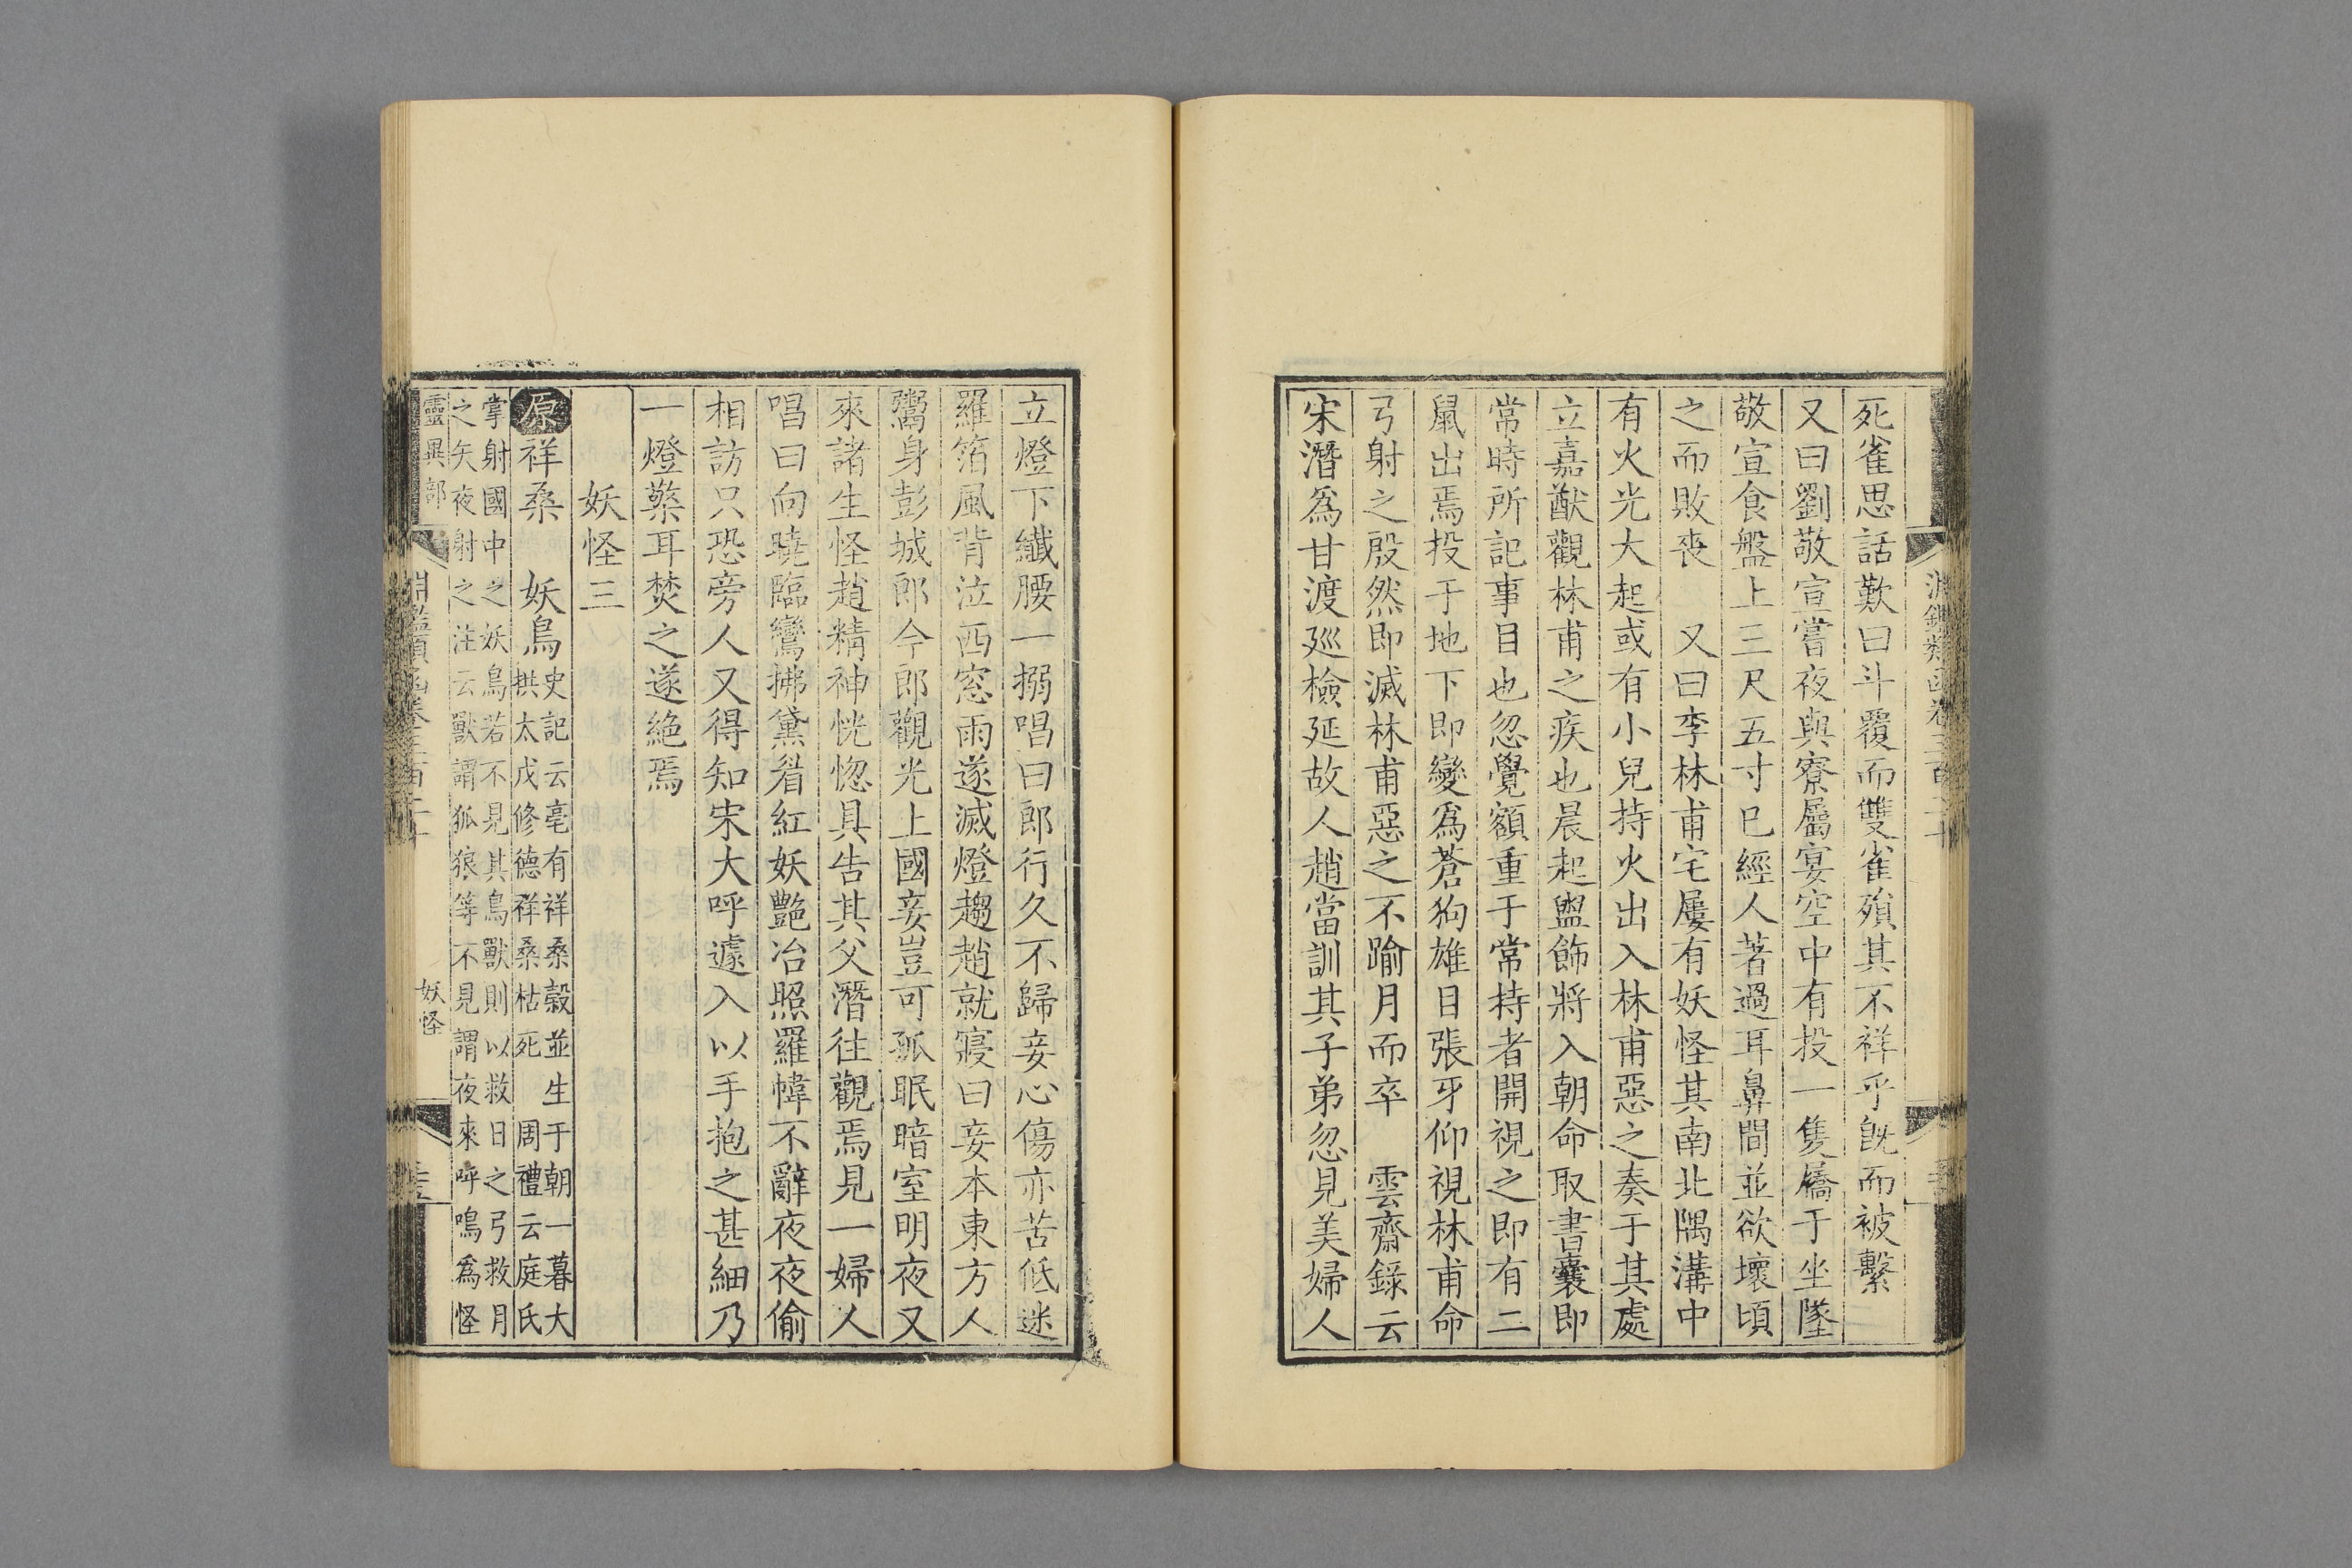 死雀思話歎曰斗覆而雙雀殞其不祥乎旣而被繫
又曰劉敬宣嘗夜與寮屬宴空中有投一隻屩于坐墜
敬宣食盤上三尺五寸巳經人著過耳鼻間並欲壞頃
之而敗喪　又曰李林甫宅屢有妖怪其南北隅溝中
有火光大起或有小兒持火出入林甫惡之奏于其處
立嘉猷觀林甫之疾也晨起盥飾將入朝命取書囊即
常時所記事目也忽覺額重于常持者開視之即有二
鼠出焉投于地下即變爲蒼狗雄目張牙仰視林甫命
弓射之殷然即滅林甫惡之不踰月而卒　雲齋錄云
宋潛爲甘渡巡檢延故人趙當訓其子弟忽見美婦人
立燈下纖腰一搦唱曰郎行久不歸妾心傷亦苦低迷
羅箔風背泣西窓雨遂滅燈趨趙就寢曰妾本東方人
鬻身彭城郎今郎觀光上國妾豈可孤眠暗室明夜又
來諸生怪趙精神恍惚具告其父潛往觀焉見一婦人
唱曰向曉臨鸞拂黛眉紅妖艷冶照羅幃不辭夜夜偷
相訪只恐旁人又得知宋大呼遽入以手抱之甚細乃
一燈檠耳焚之遂絕焉
妖怪三
原祥桑　妖鳥史記云亳有祥桑榖並生于朝一暮大
拱太戊修德祥桑枯死　周禮云庭氏
掌射國中之妖鳥若不見其鳥獸則以救日之弓救月
之矢夜射之注云獸謂狐狼等不見謂夜來呼鳴爲怪
靈異部
妖怪